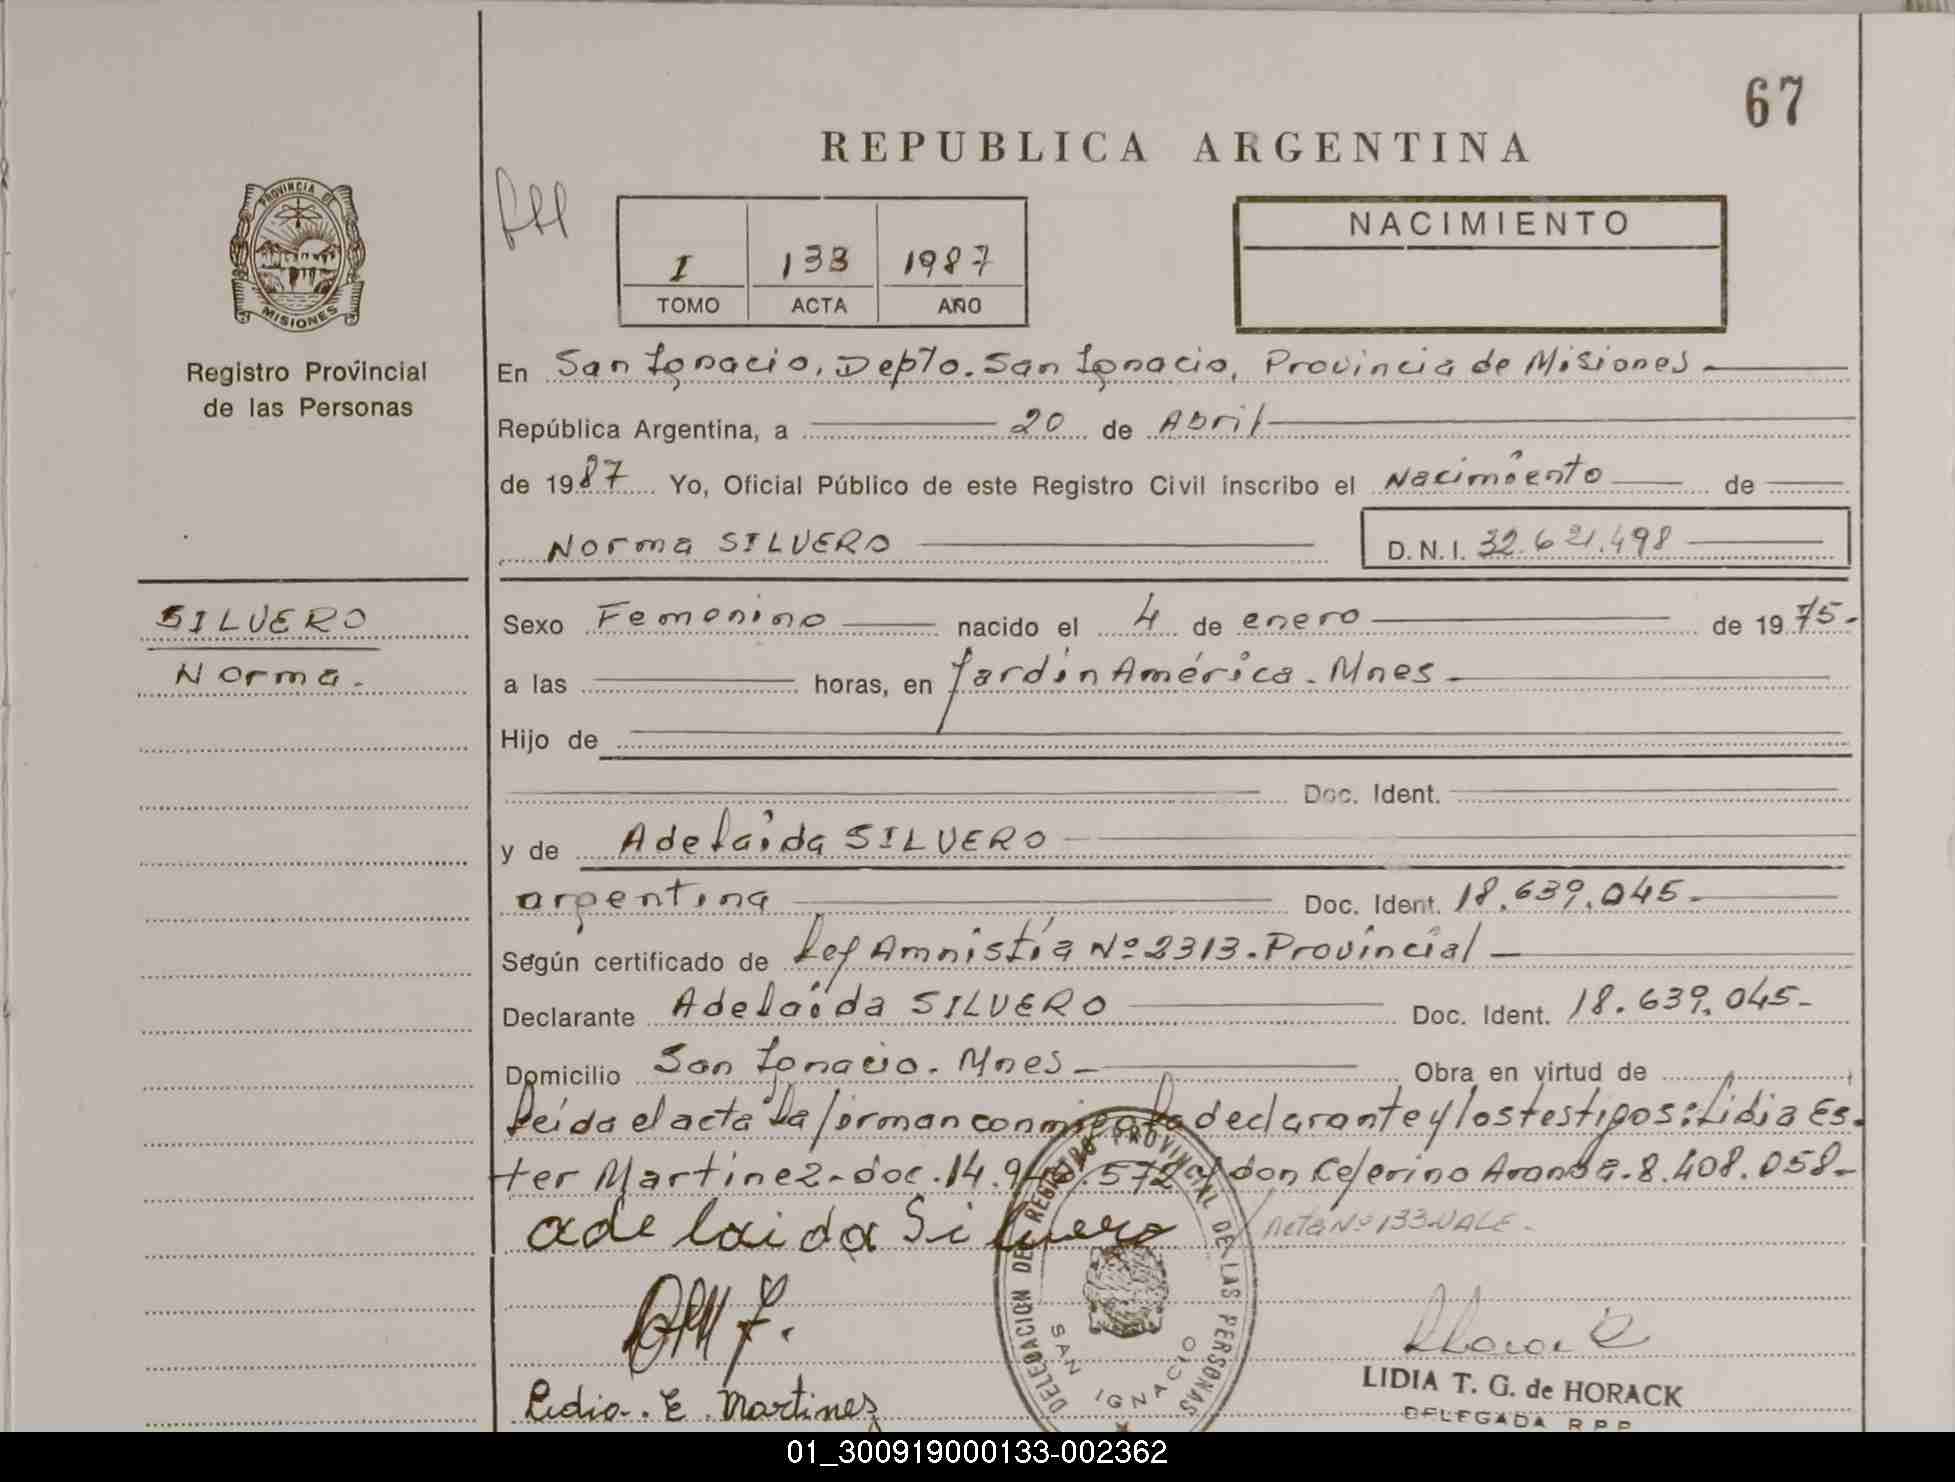 67
REPUBLICA ARGENTINA
PROVINCIA DE
MISIONES
Registro Provincial
de las Personas
I 133 1987
TOMO ACTA AÑO
NACIMIENTO
En San Ignacio, Depto. San Ignacio, Provincia de Misiones
República Argentina, a 20 de Abril
de 1987 Yo, Oficial Público de este Registro Civil inscribo el Nacimiento de
Norma SILVERO D.N.I. 32.621.498
SILVERO
Norma.
Sexo Femenino nacido el 4 de enero de 1975-
a las horas, en Jardín América. Mnes-
Hijo de
Doc. Ident.
y de Adelaida SILVERO
argentina Doc. Ident. 18.639.045-
Según certificado de Ley Amnistía Nº 2313. Provincial
Declarante Adelaida SILVERO Doc. Ident. 18.639.045-
Domicilio San Ignacio. Mnes- Obra en virtud de
Leída el acta la firman conmigo la declarante y los testigos: Lidia Es-
ter Martinez-doc.14.9 .572 y don Ceferino Aranda. 8.408.058-
adelaida Silvero
Acta Nº 133. VALE-
Lidia. E. Martines
DELEGACION DEL REGISTRO PROVINCIAL DE LAS PERSONAS
SAN IGNACIO
LIDIA T. G. de HORACK
DELEGADA R.P.P.
01_300919000133-002362